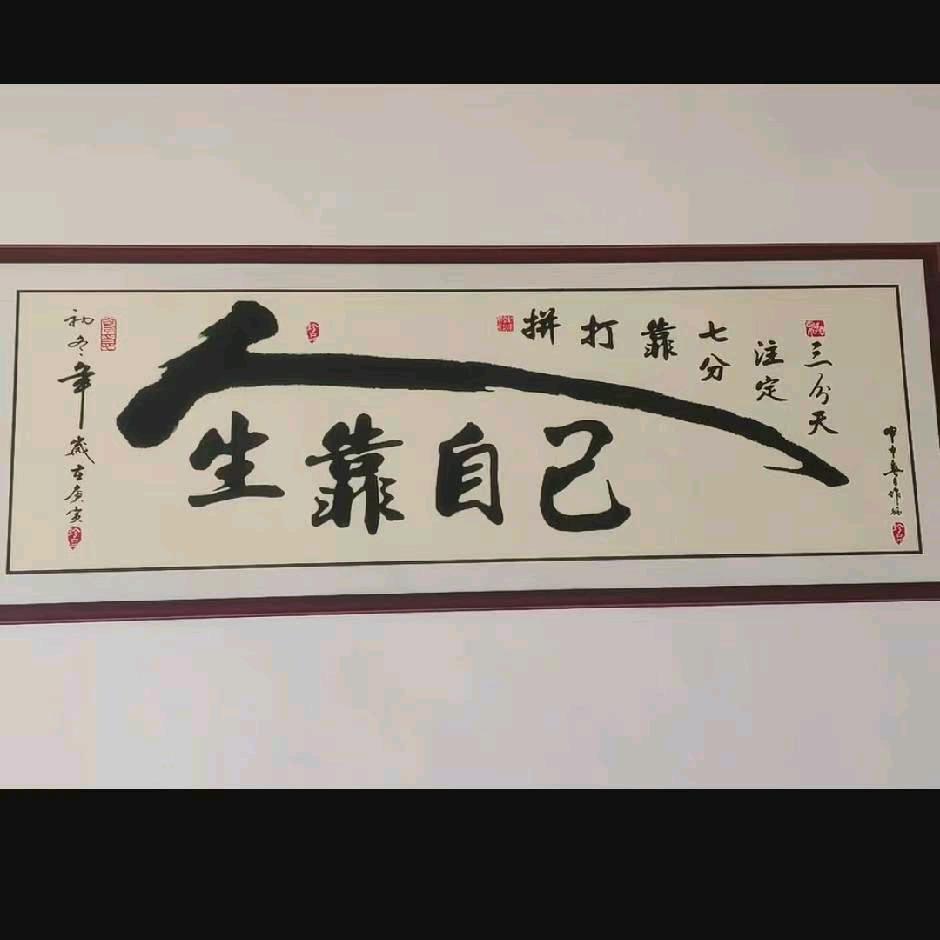 人生靠自己
三分天
注定
七分
靠
打
拼
初冬年歲在庚寅